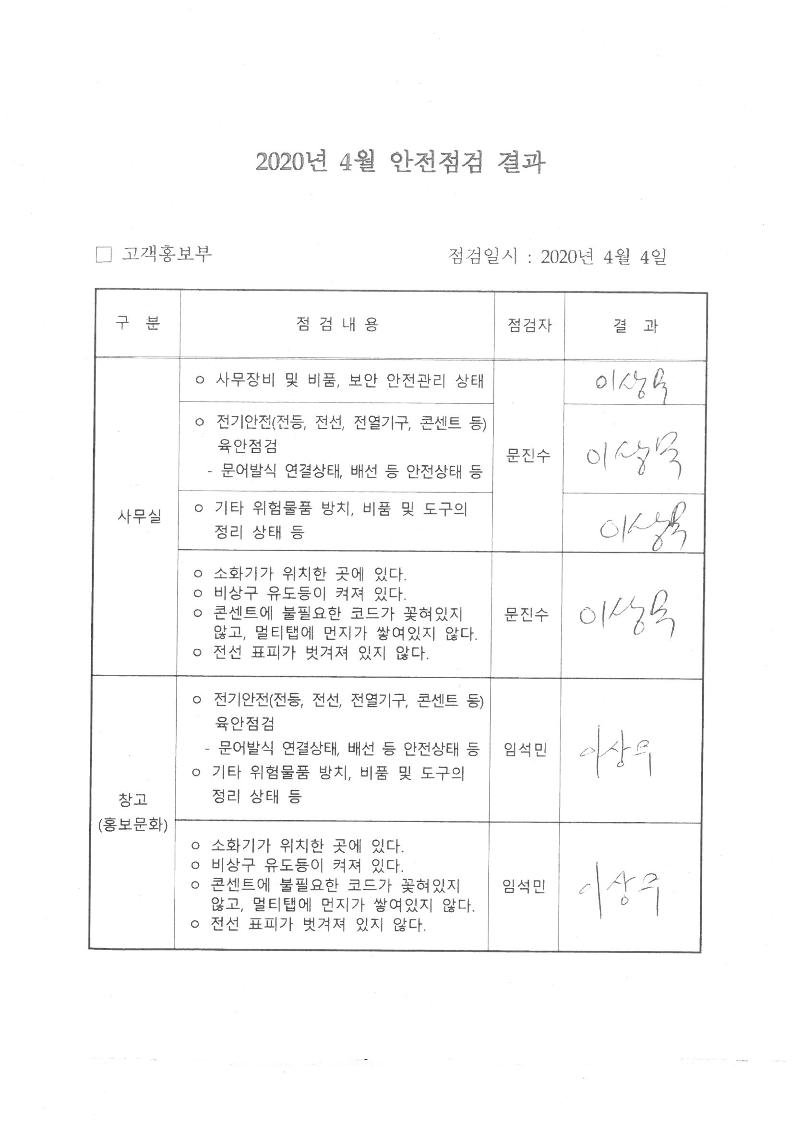 2020년 4월 안전점검 결과
□ 고객홍보부 점검일시 : 2020년 4월 4일
구 분 점 검 내 용 점검자 결 과
사무실
○ 사무장비 및 비품, 보안 안전관리 상태
이상무
○ 전기안전(전등, 전선, 전열기구, 콘센트 등)
육안점검
- 문어발식 연결상태, 배선 등 안전상태 등
문진수
이상무
○ 기타 위험물품 방치, 비품 및 도구의
정리 상태 등
이상무
○ 소화기가 위치한 곳에 있다.
○ 비상구 유도등이 켜져 있다.
○ 콘센트에 불필요한 코드가 꽃혀있지
않고, 멀티탭에 먼지가 쌓여있지 않다.
○ 전선 표피가 벗겨져 있지 않다.
문진수
이상무
창고
(홍보문화)
○ 전기안전(전등, 전선, 전열기구, 콘센트 등)
육안점검
- 문어발식 연결상태, 배선 등 안전상태 등
○ 기타 위험물품 방치, 비품 및 도구의
정리 상태 등
임석민
이상무
○ 소화기가 위치한 곳에 있다.
○ 비상구 유도등이 켜져 있다.
○ 콘센트에 불필요한 코드가 꽃혀있지
않고, 멀티탭에 먼지가 쌓여있지 않다.
○ 전선 표피가 벗겨져 있지 않다.
임석민
이상무